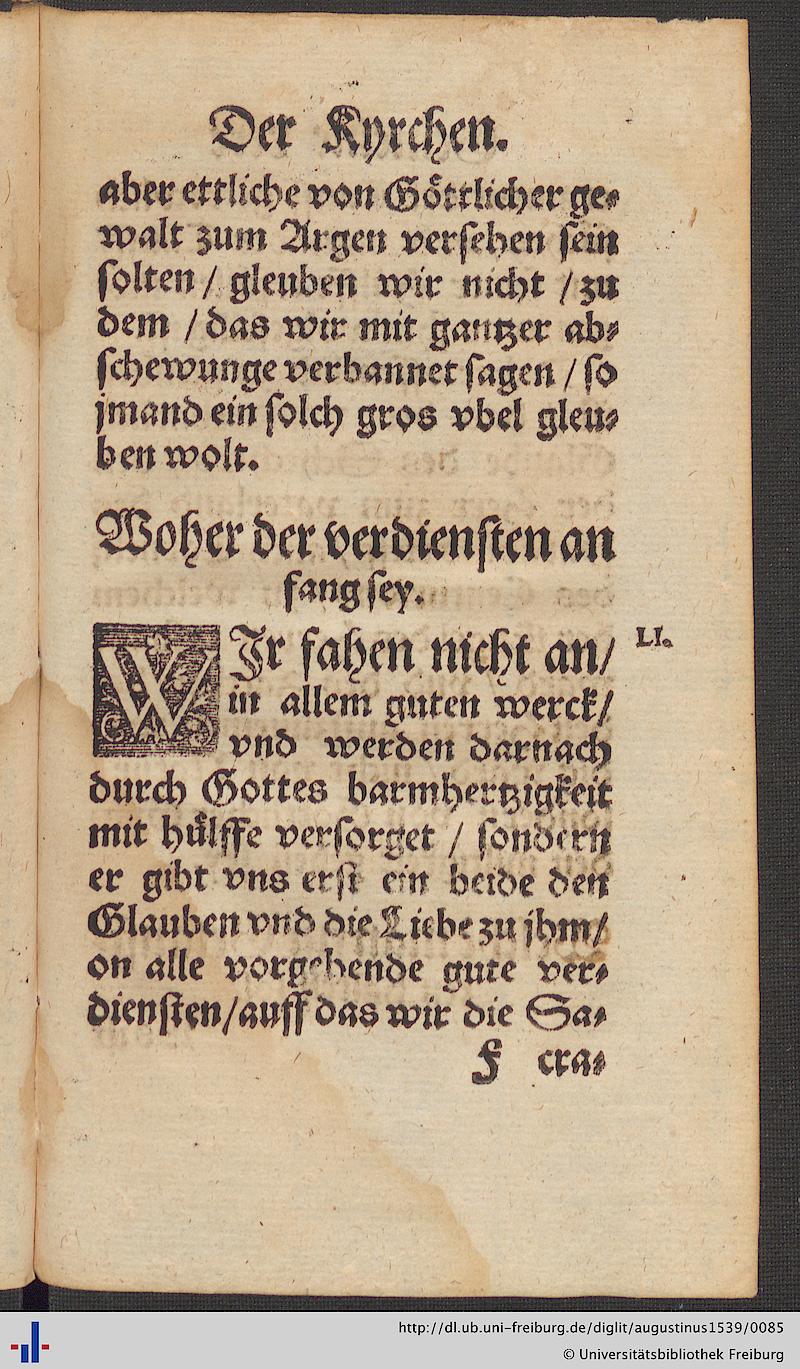 Der Kyrchen.
aber ettliche von Göttlicher ge⸗
walt zum Argen versehen sein
solten / gleuben wir nicht / zu
dem / das wir mit gantzer ab⸗
schewunge verbannet sagen / so
jmand ein solch gros vbel gleu⸗
ben wolt.
Woher der verdiensten an
fang sey.
WJr fahen nicht an/
LI.
in allem guten werck/
vnd werden darnach
durch Gottes barmhertzigkeit
mit hůlffe versorget / sondern
er gibt vns erst ein beide den
Glauben vnd die Liebe zu jhm/
on alle vorgehende gute ver⸗
diensten/auff das wir die Sa⸗
F cra⸗
http://dl.ub.uni-freiburg.de/diglit/augustinus1539/0085
© Universitätsbibliothek Freiburg